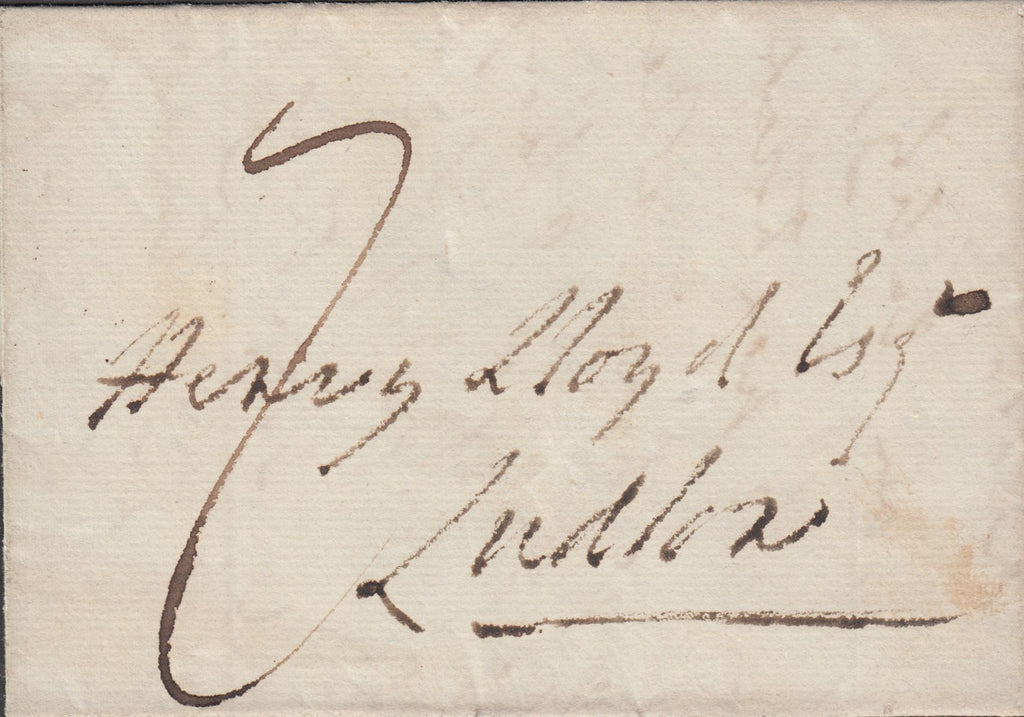 7
Henry Lloyd Esqr
Ludlow